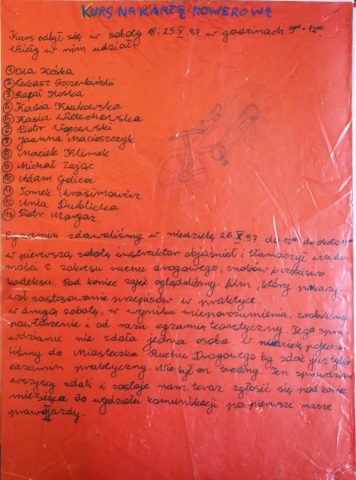 KURS NA KARTĘ ROWEROWĄ
Kurs odbył się w soboty 18 i 25.X.97 w godzinach 9⁰⁰-12⁰⁰
Wzięły w nim udział:
① Ola Kośka
② Łukasz Szczerbiński
③ Rafał Kośka
④ Kasia Krukowska
⑤ Kasia Wielechowska
⑥ Piotr
⑦ Joanna Macioszczyk
⑧ Maciek Klimek
⑨ Michał Zając
⑩ Adam Golica
⑪ Tomek Krasimowicz
⑫ Anla Dublicka
⑬ Piotr Margar
Egzamin zdawaliśmy w niedzielę 26.X.97. od 12⁰⁰ do około
w pierwszą sobotę instruktor objaśniał i tłumaczył wiado-
mości z zakresu ruchu drogowego, znaków i
kodeksu. Pod koniec zajęć oglądaliśmy film, który pokazy-
wał zastosowanie przepisów w praktyce.
W drugą sobotę, w wyniku nieporozumienia, zrobiliśmy
powtórzenie i od razu egzamin teoretyczny. Tego spraw-
dzianu nie zdała jedna osoba w niedzielę pojecha-
liśmy do Miasteczka Ruchu Drogowego by zdać już tylko
egzamin praktyczny. Nie był on trudny. Ten sprawdzian
wszyscy zdali i zostaje nam teraz zgłosić się pod koniec
miesiąca do wydziału komunikacji po pierwsze nasze
prawo jazdy.